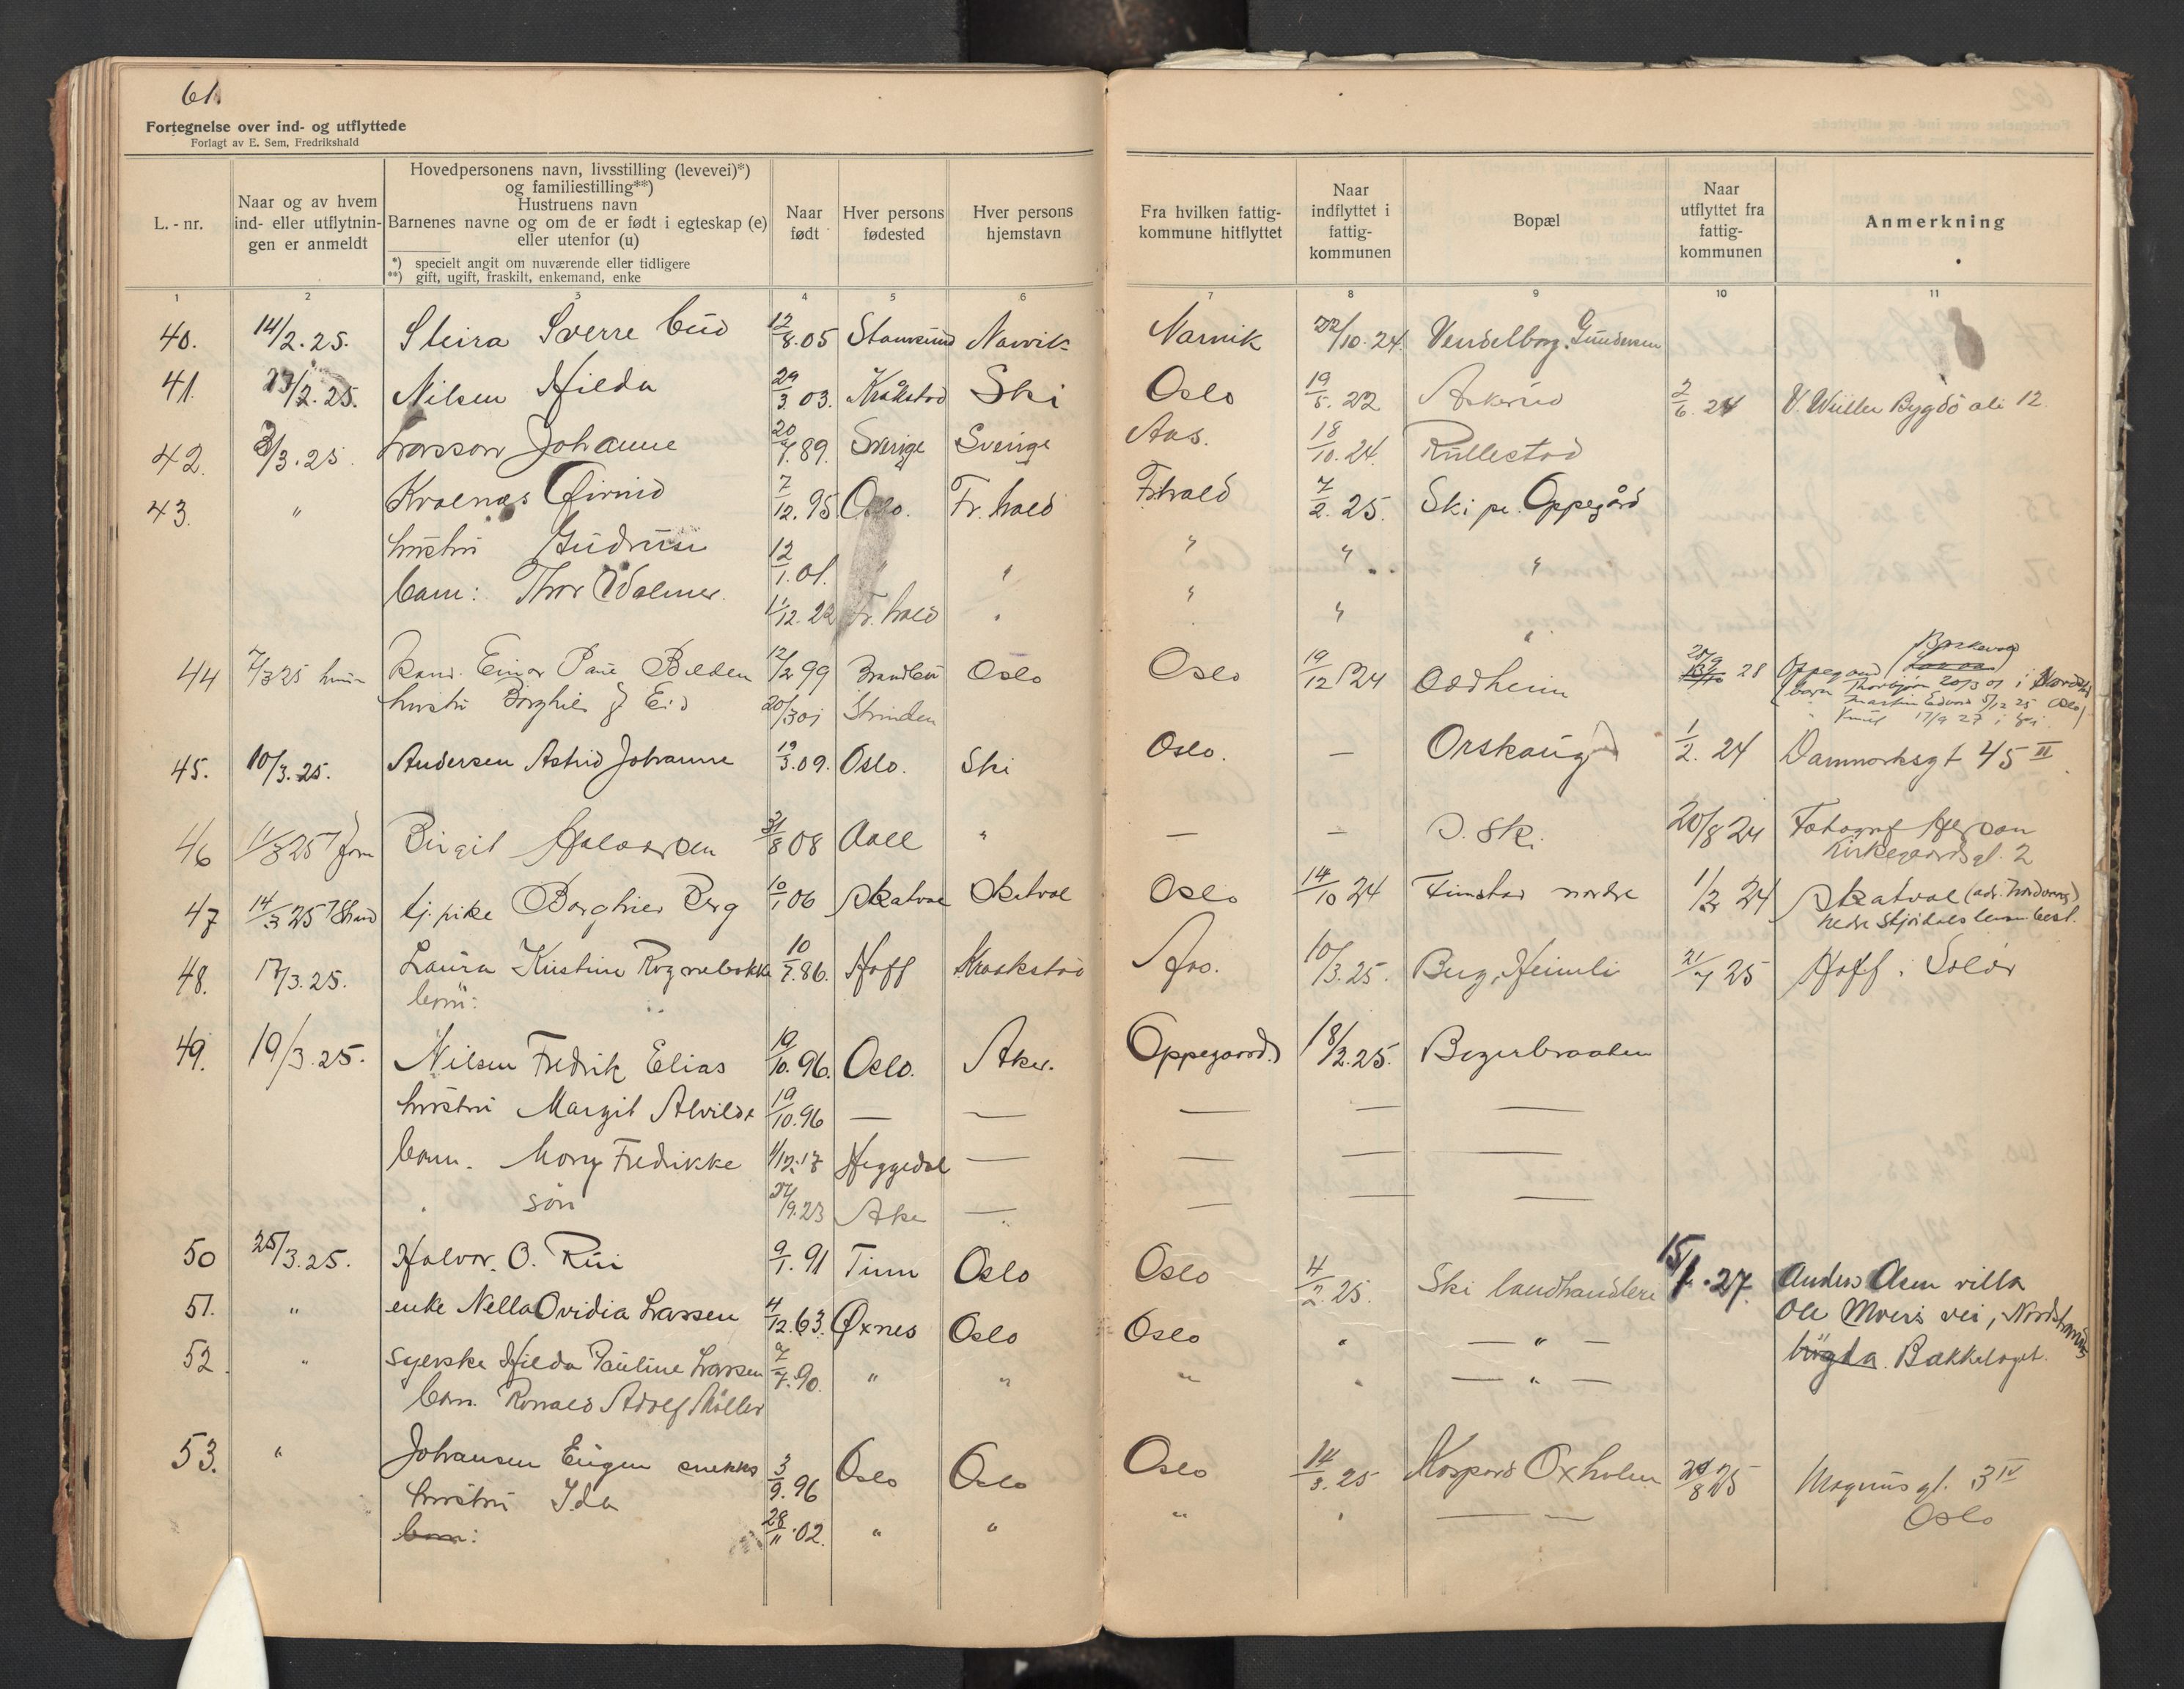 61.
Fortegnelse over ind- og utflyttede
Forlagt av E. Sem, Fredrikshald
L.-nr.
Naar og av hvem ind- eller utflytningen er anmeldt
Hovedpersonens navn, livsstilling (levevei)*)
og familiestilling**)
Hustruens navn
Barnenes navne og om de er født i egteskap (e)
eller utenfor (u)
*) specielt angit om nuværende eller tidligere
**) gift, ugift, fraskilt, enkemand, enke
Naar født
Hver persons fødested
Hver persons hjemstavn
Fra hvilken fattigkommune hitflyttet
Naar indflyttet i fattigkommunen
Bopæl
Naar utflyttet fra fattigkommunen
Anmerkning
1 2 3 4 5 6 7 8 9 10 11
40. 14/2.25. Steira Sverre 12/8.05 Stamsund Narvik Narvik 22/10.24. Vendelborg. Gundersen
41. 23/2.25. Nilsen Hilda 29/3.03. Kråkstad Ski Oslo 19/8.22 Askerud 2/6.24 V. Bygdö ale 12
42. 3/3.25. Larsson Johanne 20/7.89. Sverige Sverige Aas. 18/10.24. Rullestad
43. " Øivind 7/12.95 Oslo. Fr.hald Frhald 7/2.25. Ski pr. Oppegård
hustru Gudrun 12/1.01. " " " " "
barn: Thor 11/12.22 Fr.hald " " " "
44 7/3 25 Einar 12/2 99 Oslo Oslo 19/12 24 Oppegaard
hustru Borghild Eid 20/3 01 Strinden
Martin Edvard 5/12 25 Oslo
Knut 17/9 27 i Ski
45. 10/3.25. Andersen Astrid Johanne 19/3.09. Oslo. Ski Oslo. — Orskaug 1/2.24 Danmarksgt 45 II
46 11/3 25 Birgit Halvorsen 31/8 08 " — — S. Ski. 20/8 24 Fotograf
Kirkegaardsgt. 2
47 14/3 25 tj. pike Borghild Berg 10/1 06 Skatval Skatval Oslo 14/10 24 Finstad nordre 1/2 24 Skatval
nedre Stjørdals
48. 17/3.25. Laura Kristine 10/7.86. Hoff Kraakstad Aas. 10/3.25. Berg, Heimli 21/7 25 Hoff i Solør
barn:
49. 19/3.25. Nilsen Fredrik Elias 19/10.96. Oslo. Aker. Oppegaard. 18/2.25. Bøgerbraaten
hustru Margit Alvilde 19/10.96 — — — — —
barn. Mary Fredrikke 1/12.17 Heggedal — — — —
" søn 27/9.23 Aker — — — —
50 25/3.25. Halvor. O. Rui 9/1.91 Tinn Oslo Oslo 4/2.25. Ski landhandleri 15/1.27. Anders Olsen villa
51. " enke Nella Ovidia Larsen 4/12.63. Øxnes Oslo Oslo " — " — Ole Moers vei, Nordstrands
52. " syerske Hilda Pauline Larsen 7/7.90. " " " " — " — bygda. Bækkelaget.
barn. Ronald Adolf Møller
53. " Johansen Eugen snekker 3/9.96 Oslo Oslo Oslo 14/3.25 Kaspara Oxholm 24/8 25 Magnusgt. 3 IV
hustru Ida 28/11.02. " " " " — — Oslo
barn: